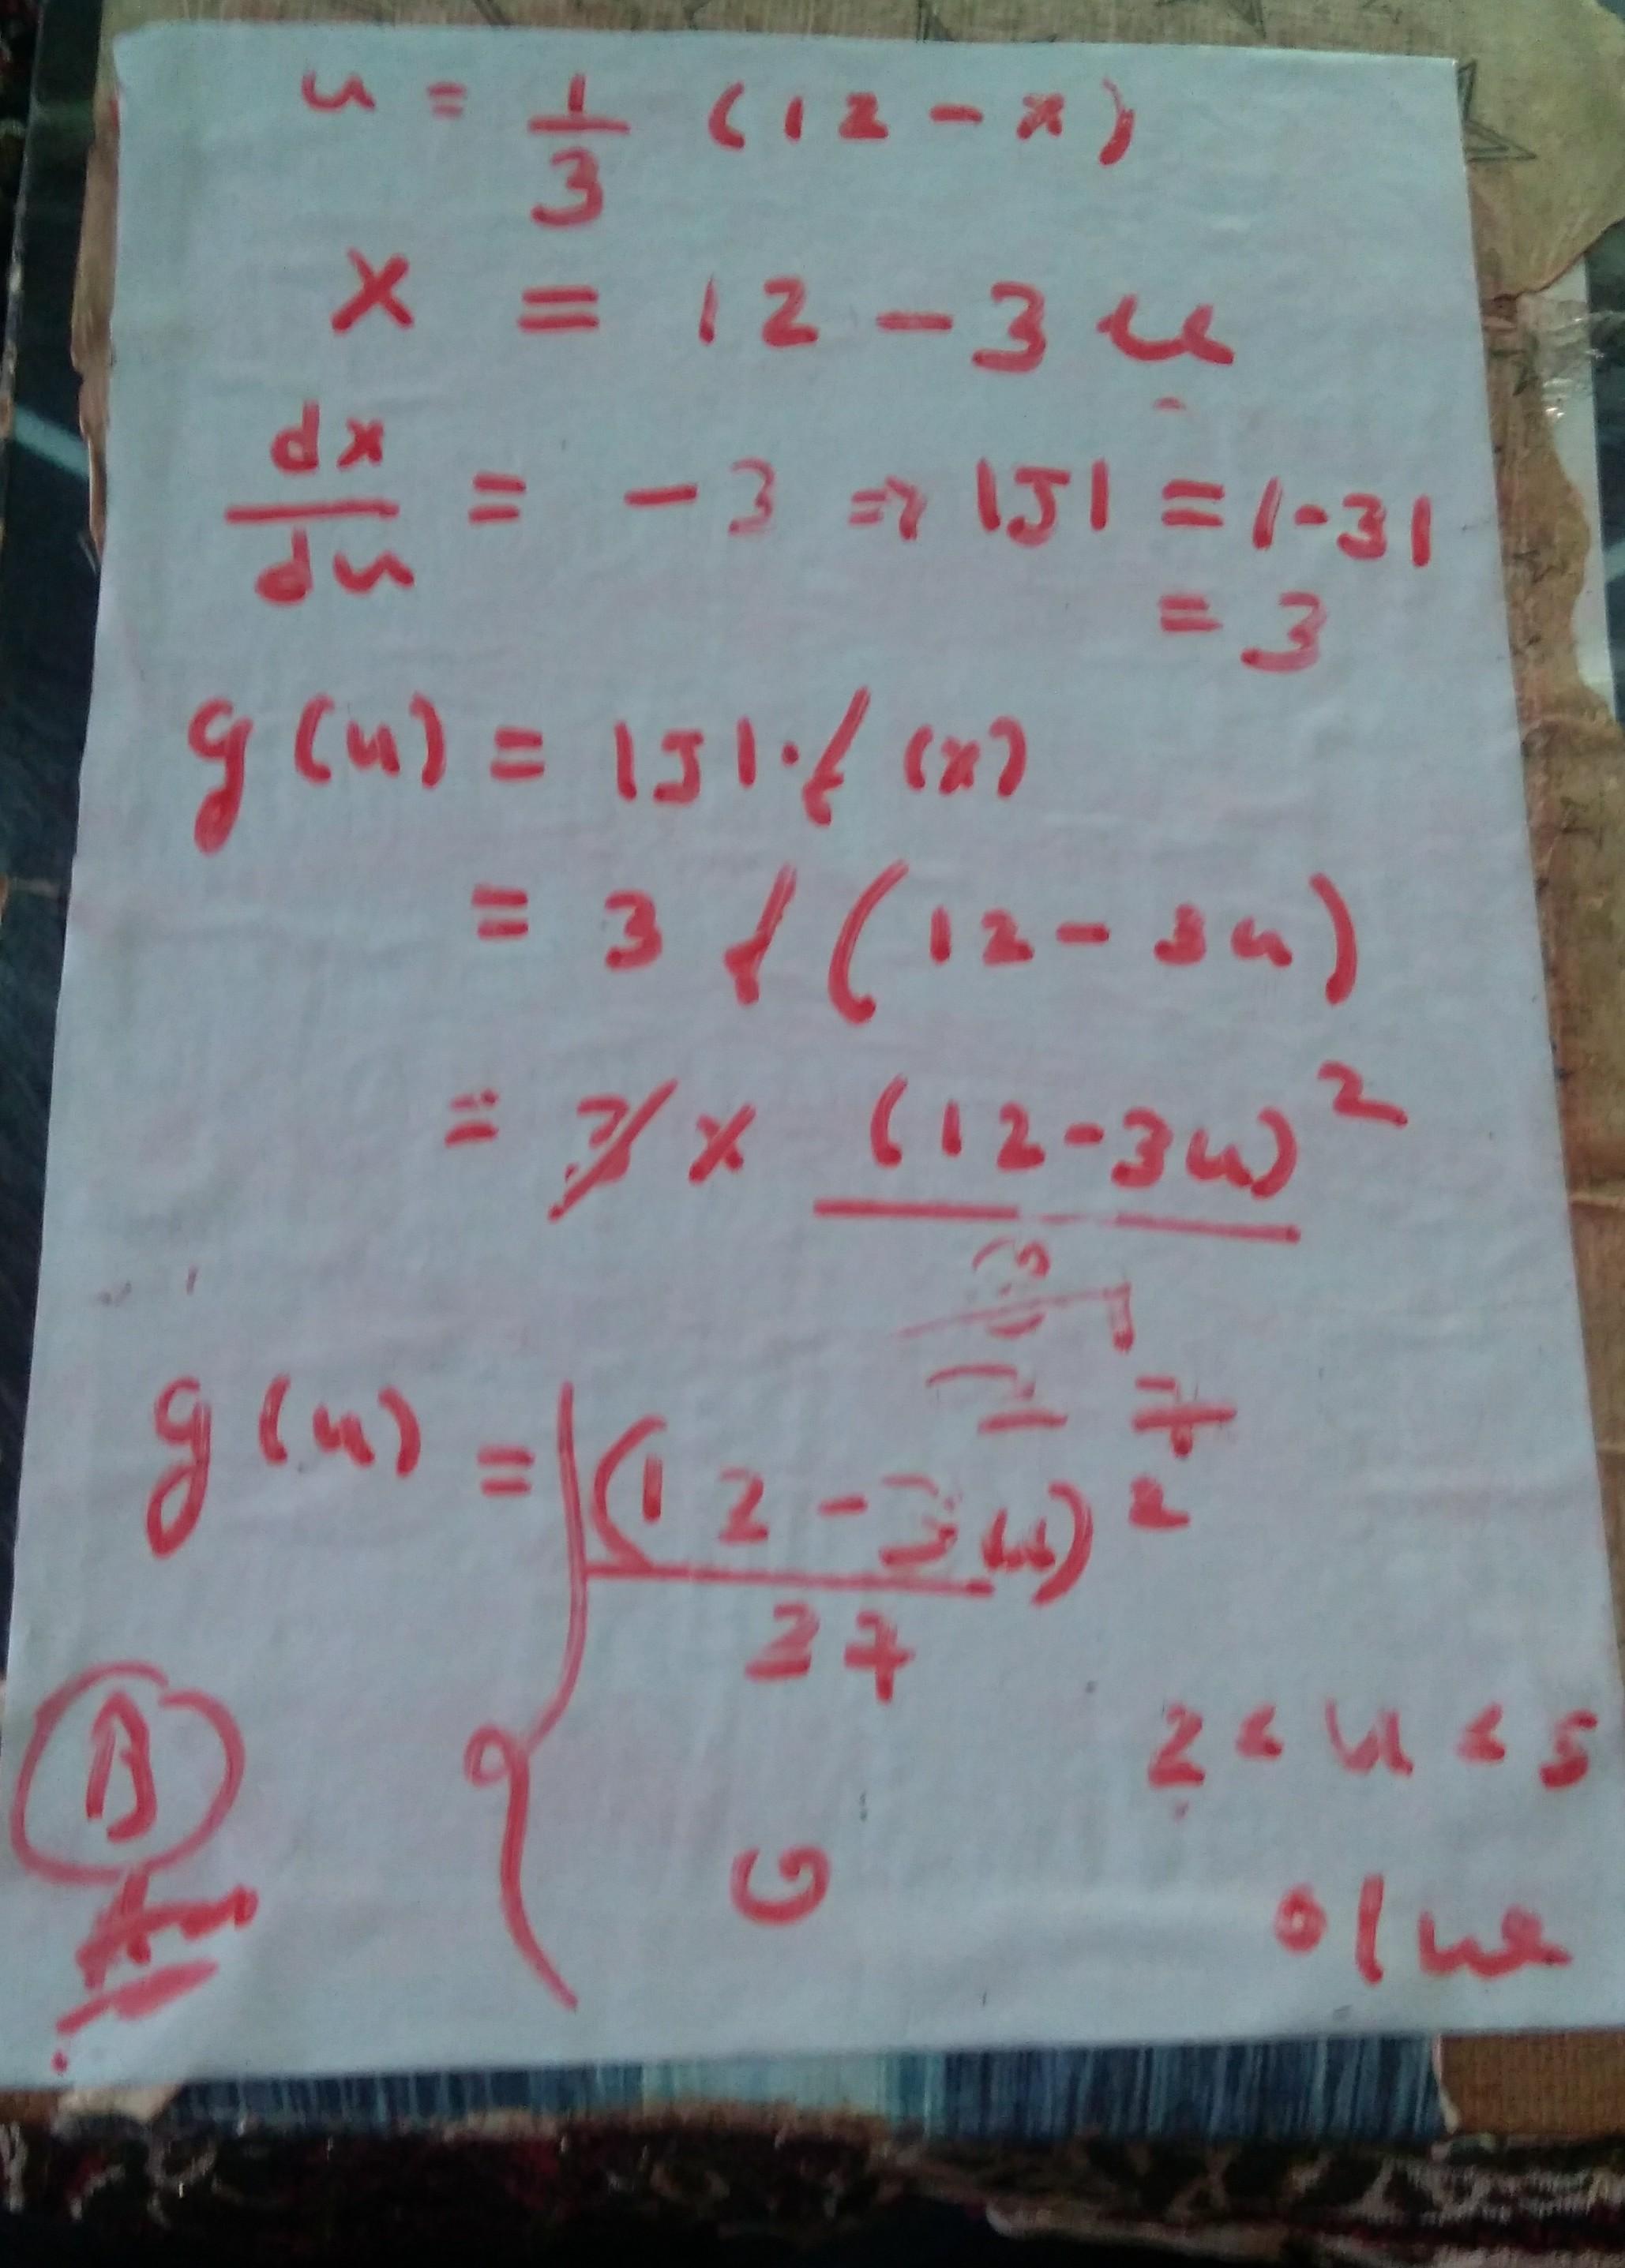 u = 1/3 (12 - x)
x = 12 - 3u
dx/du = -3 ⇒ |J| = |-3|
= 3
g(u) = |J|·f(x)
= 3 f(12 - 3u)
= 3 x (12-3u)²
g(u) = { (12 - 3u)² / 27
2 < u < 5
0
o/we
B
Ans